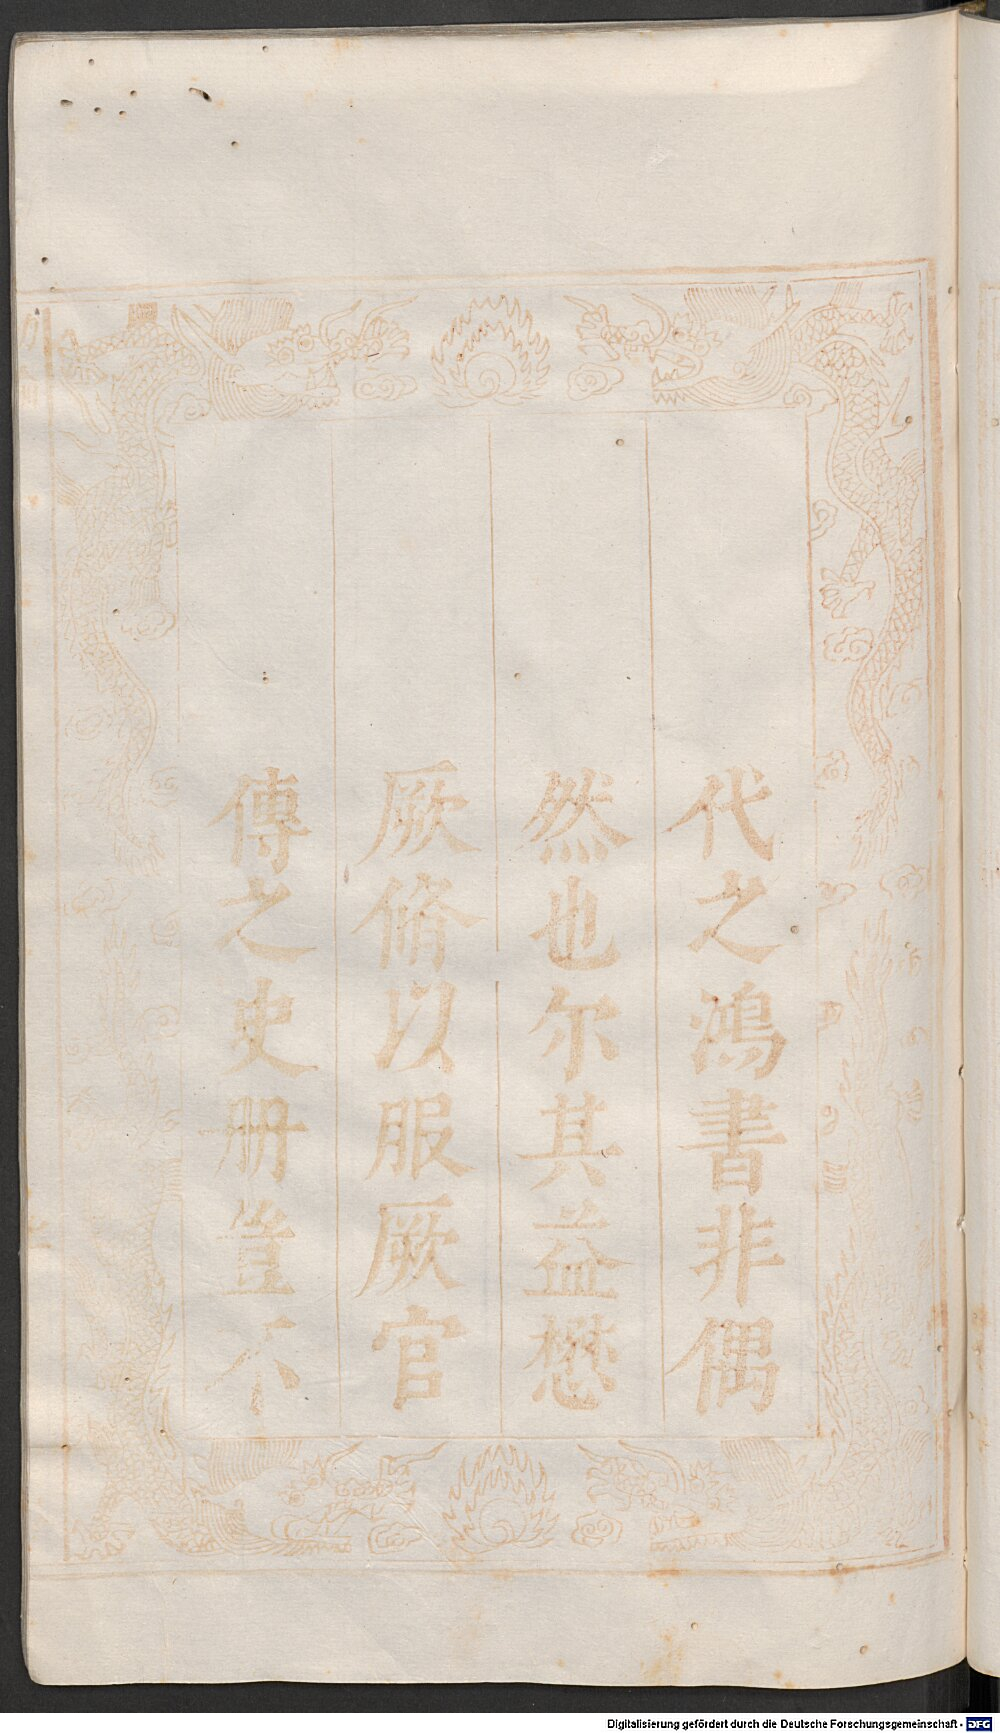 代之鴻書非偶
然也尔其益懋
厥脩以服厥官
傳之史册豈不
Digitalisierung gefördert durch die Deutsche Forschungsgemeinschaft - DFG